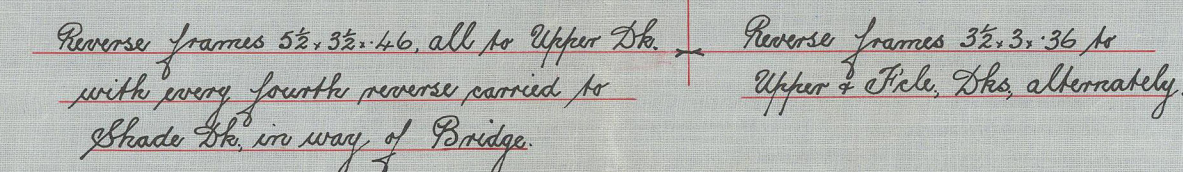 Reverse frames 5½ x 3½ x .46, all to Upper Dk.
with every fourth reverse carried to
Shade Dk, in way of Bridge.
Reverse frames 3½ x 3 x .36 to
Upper & F'cle, Dks, alternately.